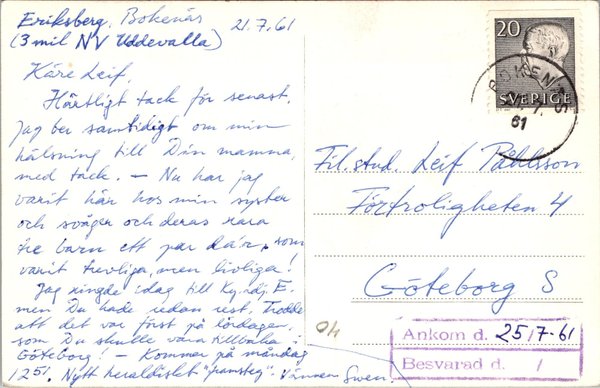 Eriksberg, Bokenäs 21.7.61
(3 mil NV Uddevalla)
Käre Leif,
Hjärtligt tack för senast.
Jag ber samtidigt om min
hälsning till Din mamma,
med tack. – Nu har jag
varit här hos min syster
och svåger och deras rara
tre barn ett par dar, som
varit trevliga, men livliga!
Jag ringde idag till
men Du hade redan rest. Trodde
att det var först på lördagen,
som Du skulle vara tillbaka i
Göteborg! – Kommer på måndag
1251. Nytt heraldiskt "framsteg". Vännen Sven.
20
SVERIGE
BOKENÄS
61
Fil.stud. Leif Påhlsson
Förtroligheten 4
Göteborg S
04
Ankom d. 25/7-61
Besvarad d. /